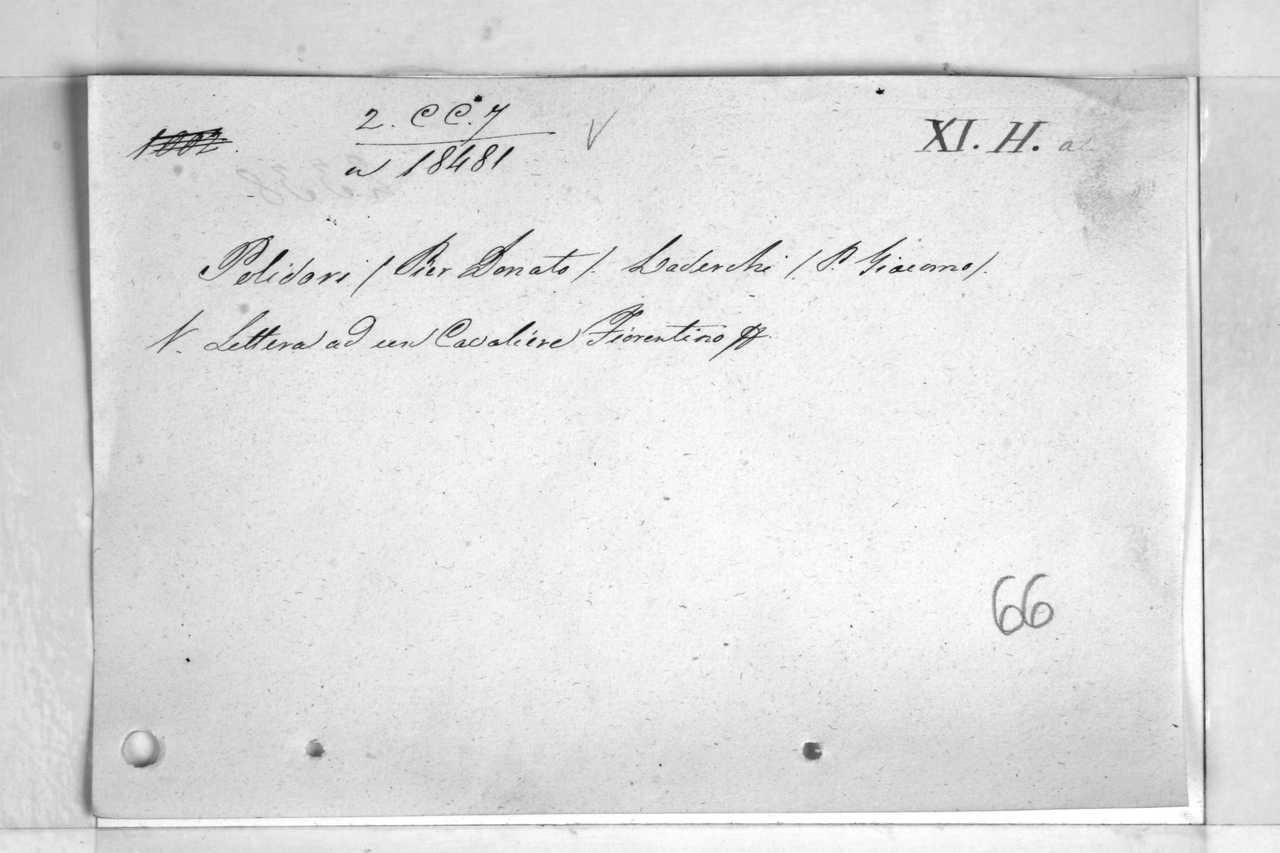 1002.
2. CC. 7
a 18481
XI. H. a
Polidori / Pier Donato /. Laderchi / P. Giacomo /.
V. Lettera ad un Cavaliere Fiorentino
66